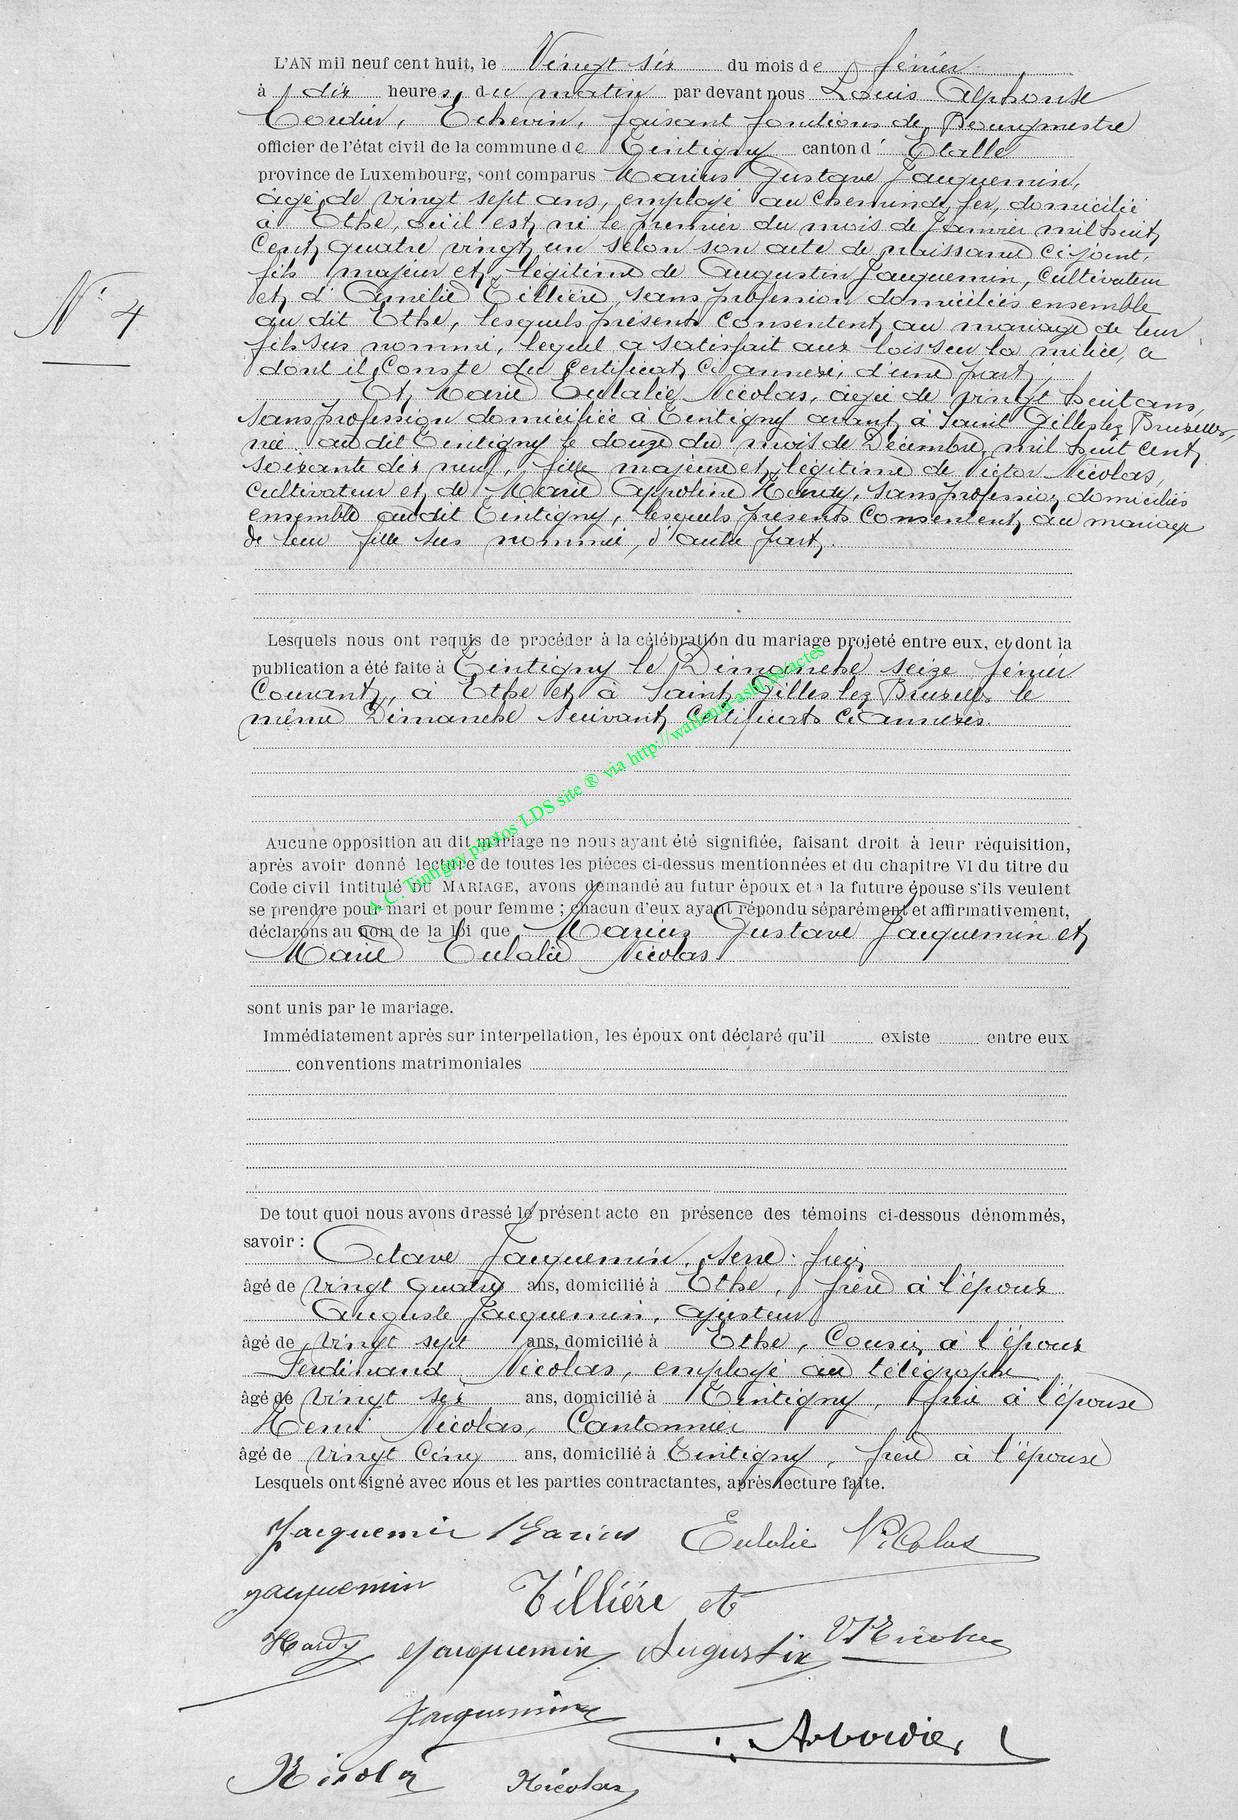 L'AN mil neuf cent huit, le Vingt six du mois de février
à dix heures du matin par devant nous Louis Alphonse
Cordier, Echevin, faisant fonctions de Bourgmestre
officier de l'état civil de la commune de Tintigny canton d' Etalle
province de Luxembourg, sont comparus Marius Gustave Jacquemin,
âgé de vingt sept ans, employé au chemin de fer, domicilié
à Ethe, où il est né le premier du mois de Janvier mil huit
cent quatre vingt un selon son acte de naissance ci joint,
fils majeur et légitime de Augustin Jacquemin, cultivateur
et d' Amélie Tillière, sans profession domiciliés ensemble
au dit Ethe, lesquels présents consentent au mariage de leur
fils sus nommé, lequel a satisfait aux lois sur la milice, a
dont il conste du certificat ci annexé, d'une part,
Et Marie Eulalie Nicolas, âgée de vingt huit ans,
sans profession domiciliée à Tintigny avant à Saint Gilles lez Bruxelles,
née au dit Tintigny le douze du mois de Décembre mil huit cent
soixante dix neuf, fille majeure et légitime de Victor Nicolas,
cultivateur et de Marie Appoline Hardy, sans profession domiciliés
ensemble audit Tintigny, lesquels présents consentent au mariage
de leur fille sus nommée, d'autre part.
Lesquels nous ont requis de procéder à la célébration du mariage projeté entre eux, et dont la
publication a été faite à Tintigny le Dimanche seize février
courant, à Ethe et à Saint Gilles lez Bruxelles le
même Dimanche suivant certificats ci annexés.
A.C. Tintigny photos LDS site ® via http://wallonia-asbl.be/actes
Aucune opposition au dit mariage ne nous ayant été signifiée, faisant droit à leur réquisition,
après avoir donné lecture de toutes les pièces ci-dessus mentionnées et du chapitre VI du titre du
Code civil intitulé DU MARIAGE, avons demandé au futur époux et à la future épouse s'ils veulent
se prendre pour mari et pour femme ; chacun d'eux ayant répondu séparément et affirmativement,
déclarons au nom de la loi que Marius Gustave Jacquemin et
Marie Eulalie Nicolas
sont unis par le mariage.
Immédiatement après sur interpellation, les époux ont déclaré qu'il existe entre eux
conventions matrimoniales
De tout quoi nous avons dressé le présent acte en présence des témoins ci-dessous dénommés,
savoir : Octave Jacquemin, serre-frein
âgé de vingt quatre ans, domicilié à Ethe, frère à l'époux
Auguste Jacquemin, ajusteur
âgé de vingt sept ans, domicilié à Ethe, Cousin à l'époux
Ferdinand Nicolas, employé au télégraphe
âgé de vingt six ans, domicilié à Tintigny, frère à l'épouse
Henri Nicolas, Cantonnier
âgé de vingt cinq ans, domicilié à Tintigny, frère à l'épouse
Lesquels ont signé avec nous et les parties contractantes, après lecture faite.
N° 4
Jacquemin Marius Eulalie Nicolas
Jacquemin Tillière
Hardy Jacquemin Augustin V Nicolas
Jacquemin
Nicolas Nicolas